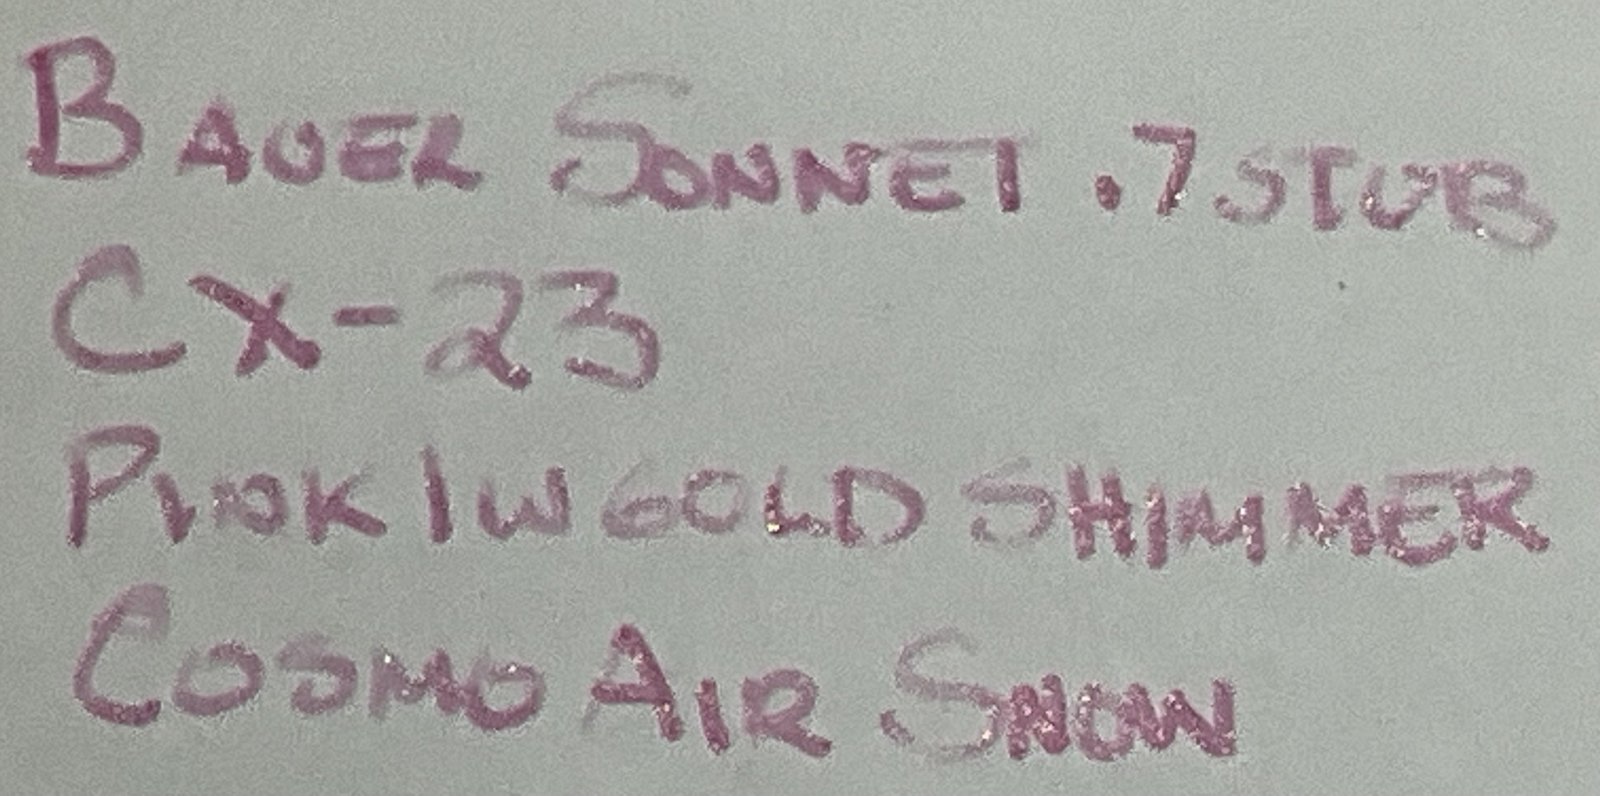 BAUER SONNET .7 STUB
CX-23
PINK / W GOLD SHIMMER
COSMO AIR SNOW